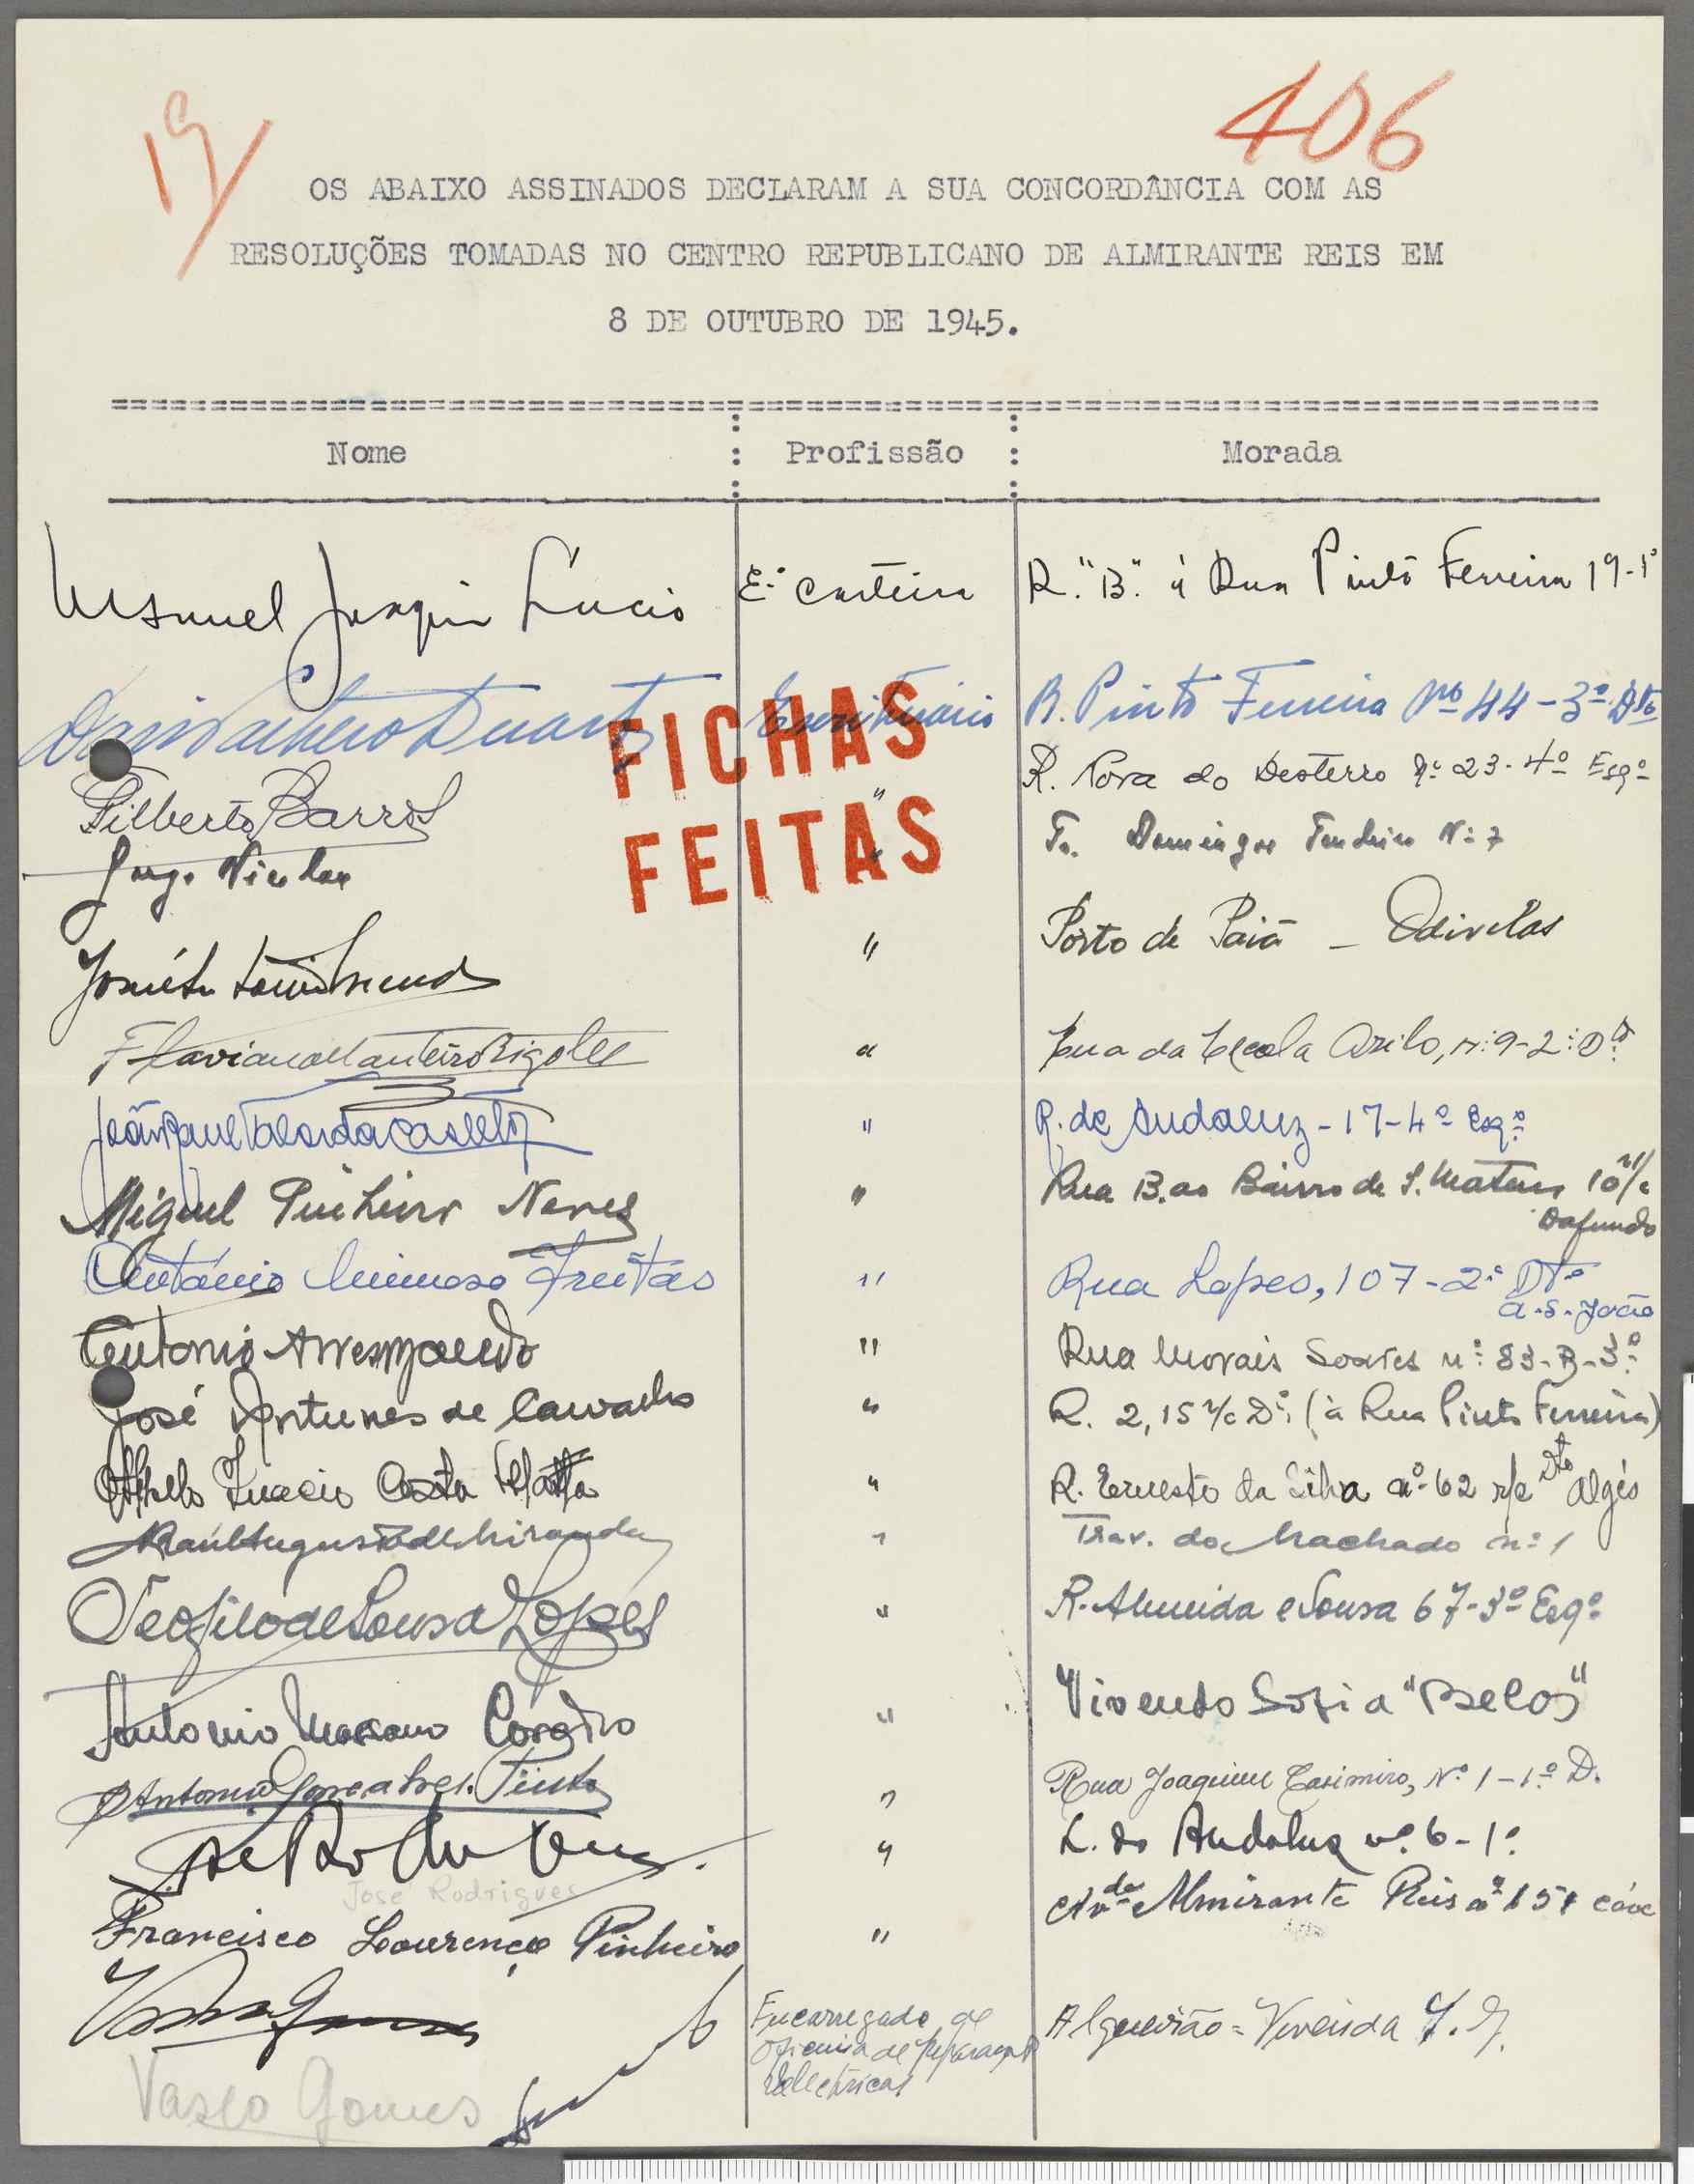 19/
406
OS ABAIXO ASSINADOS DECLARAM A SUA CONCORDÂNCIA COM AS
RESOLUÇÕES TOMADAS NO CENTRO REPUBLICANO DE ALMIRANTE REIS EM
8 DE OUTUBRO DE 1945.
Nome : Profissão : Morada
Manuel Joaquim Lucio E.º Carteira R. "B" á Rua Pinto Ferreira 19-1º
Duarte Escriturário R. Pinto Ferreira Nº 44-3º Dto
FICHAS
FEITAS
Filberto Barros " R. Nova do Desterro Nº 23-4º Esqº
Jorge Nicolau " Domingos Nº 7
" Porto de Paiã - Odivelas
Flaviano Monteiro " Rua da Escola Asilo, nº 9-2º Dto
" R. de Andaluz-17-4º Esqº
Miguel Pinheiro Neves " Rua B. ao Bairro de S. Mateus 10 r/c
Dafundo
António Mimoso Freitas " Rua Lopes, 107-2º Dto
a. S. João
Antonio " Rua Morais Soares nº 83-B-3º
José Antunes de Carvalho " R. 2, 15 r/c Dº (à Rua Pinto Ferreira)
Othelo Inacio Costa Matta " R. Ernesto da Silva nº 62 r/c Dto Algés
Raúl Augusto de Miranda " Trav. do Machado nº 1
Teofilo de Sousa Lopes " R. Almeida e Sousa 67-3º Esqº
Antonio " Vivenda Sofia "Belas"
Antonio Gonçalves Pinto " Rua Joaquim Casimiro, Nº 1-1º D.
" L. do Andaluz nº 6-1º
José Rodrigues
Francisco Lourenço Pinheiro " Avda Almirante Reis nº 151 cave
Vasco Gomes Encarregado de Algueirão = Vivenda
oficina de reparações
electricas
Vasco Gomes